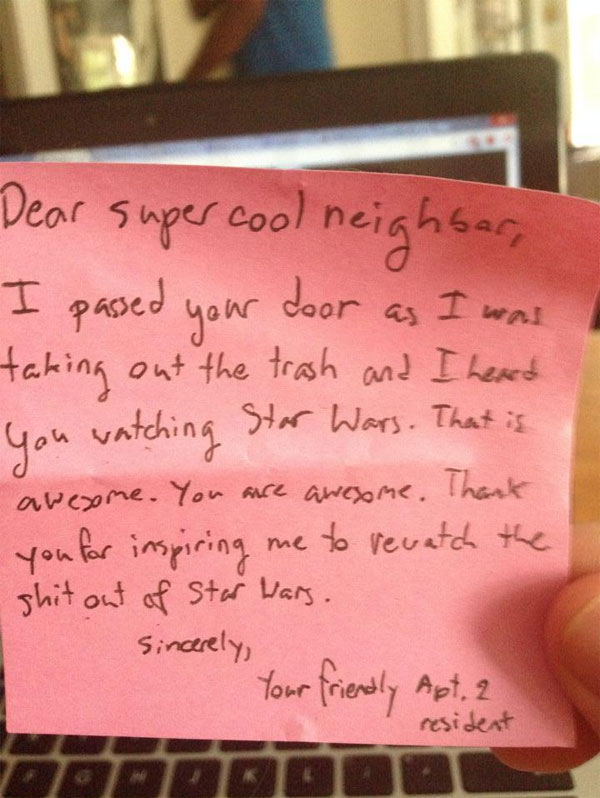 Dear super cool neighbor,
I passed your door as I was
taking out the trash and I heard
you watching Star Wars. That is
awesome. You are awesome. Thank
you for inspiring me to rewatch the
shit out of Star Wars.
Sincerely,
Your friendly Apt. 2
resident
F G H J K L